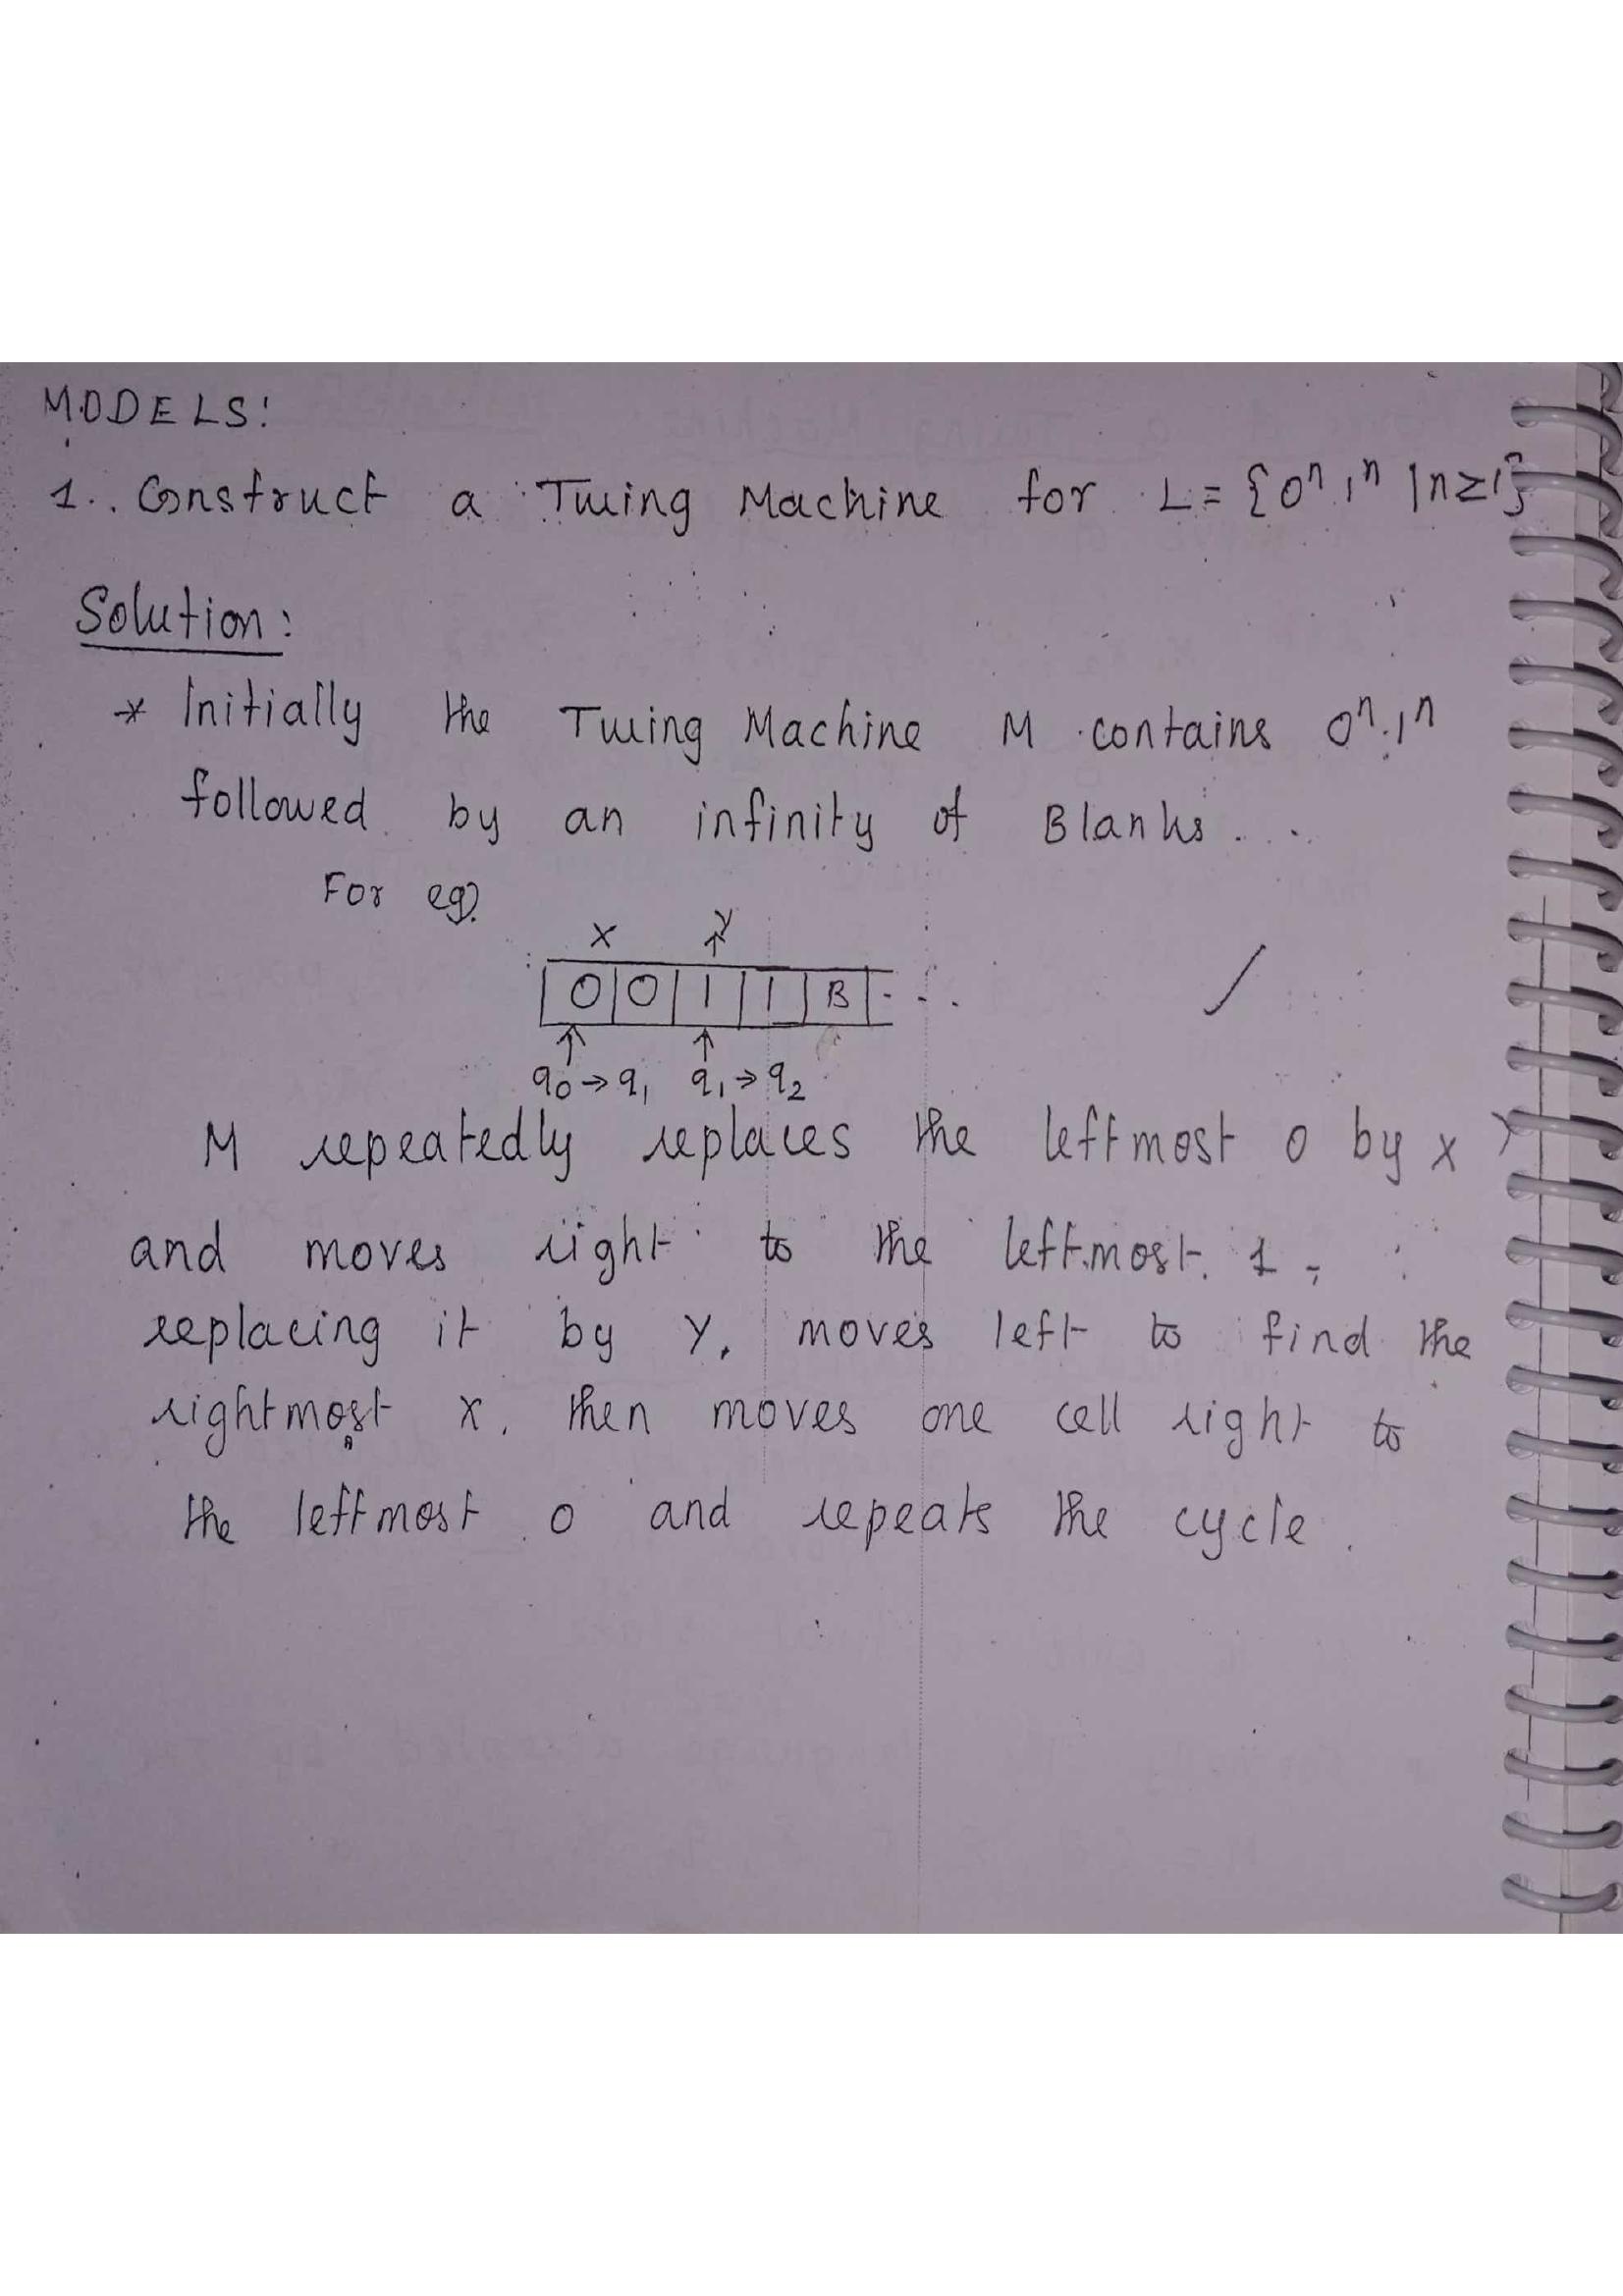 MODELS:
1. Construct a Turing Machine for L = {0ⁿ 1ⁿ | n ≥ 1}
Solution:
* Initially the Turing Machine M contains 0ⁿ 1ⁿ
followed by an infinity of Blanks...
For eg).
X Y
0 0 1 1 B ...
q₀ → q₁ q₁ → q₂
M repeatedly replaces the leftmost 0 by X
and moves right to the leftmost 1,
replacing it by Y, moves left to find the
rightmost X, then moves one cell right to
the leftmost 0 and repeats the cycle.